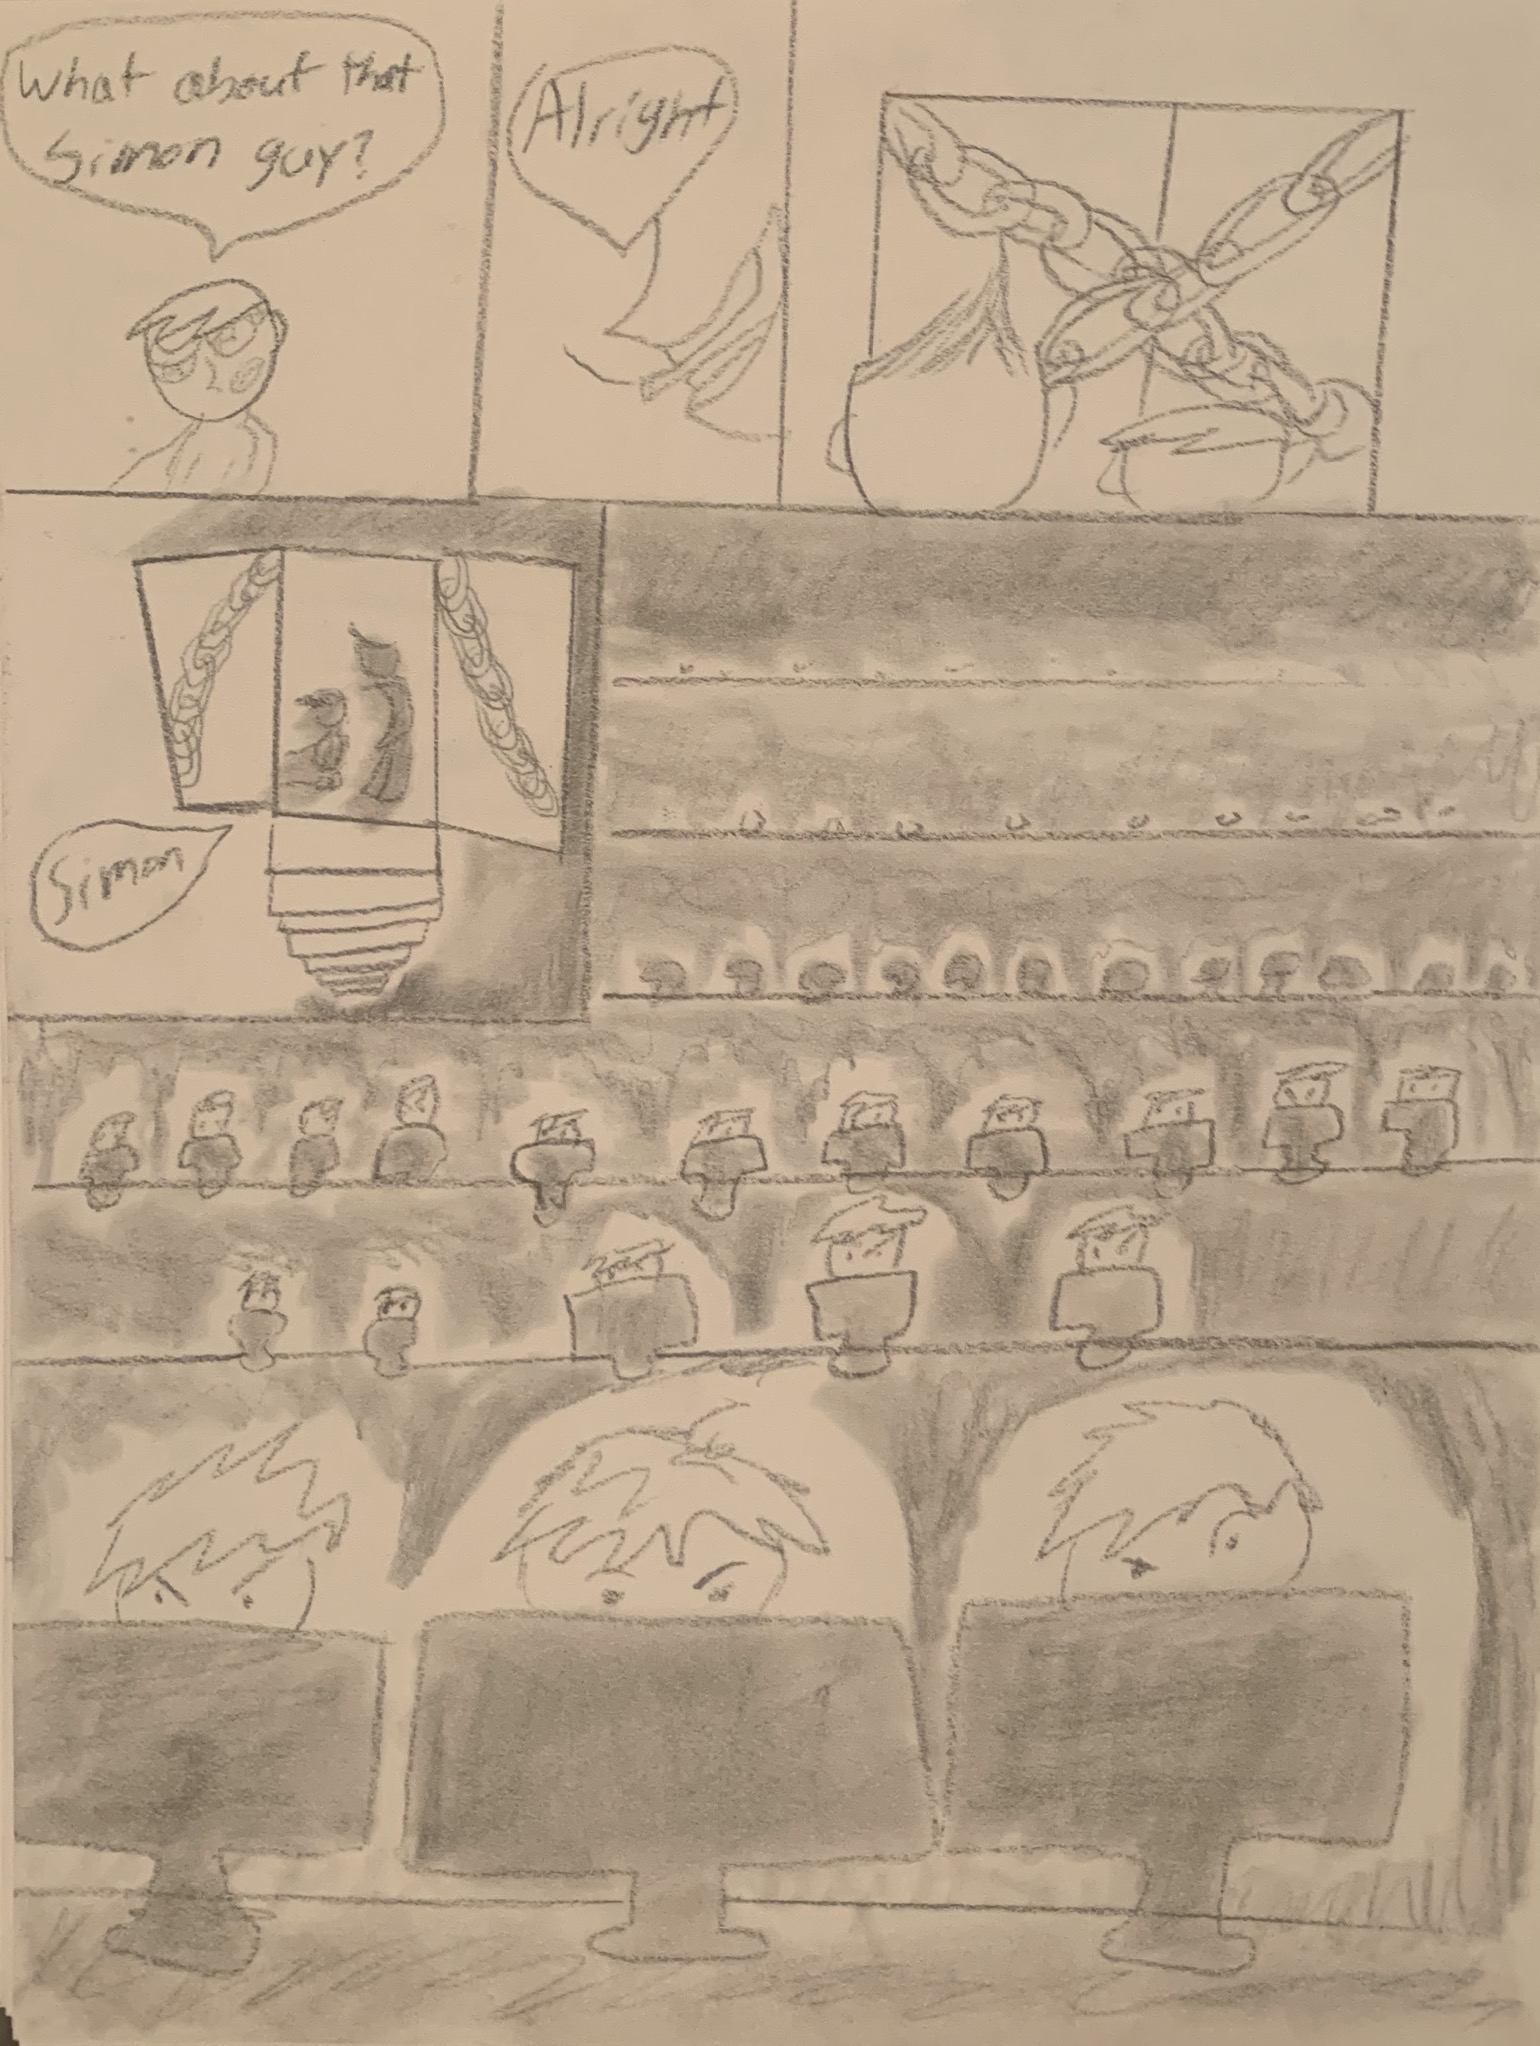 What about that
Simon guy?
Alright
Simon